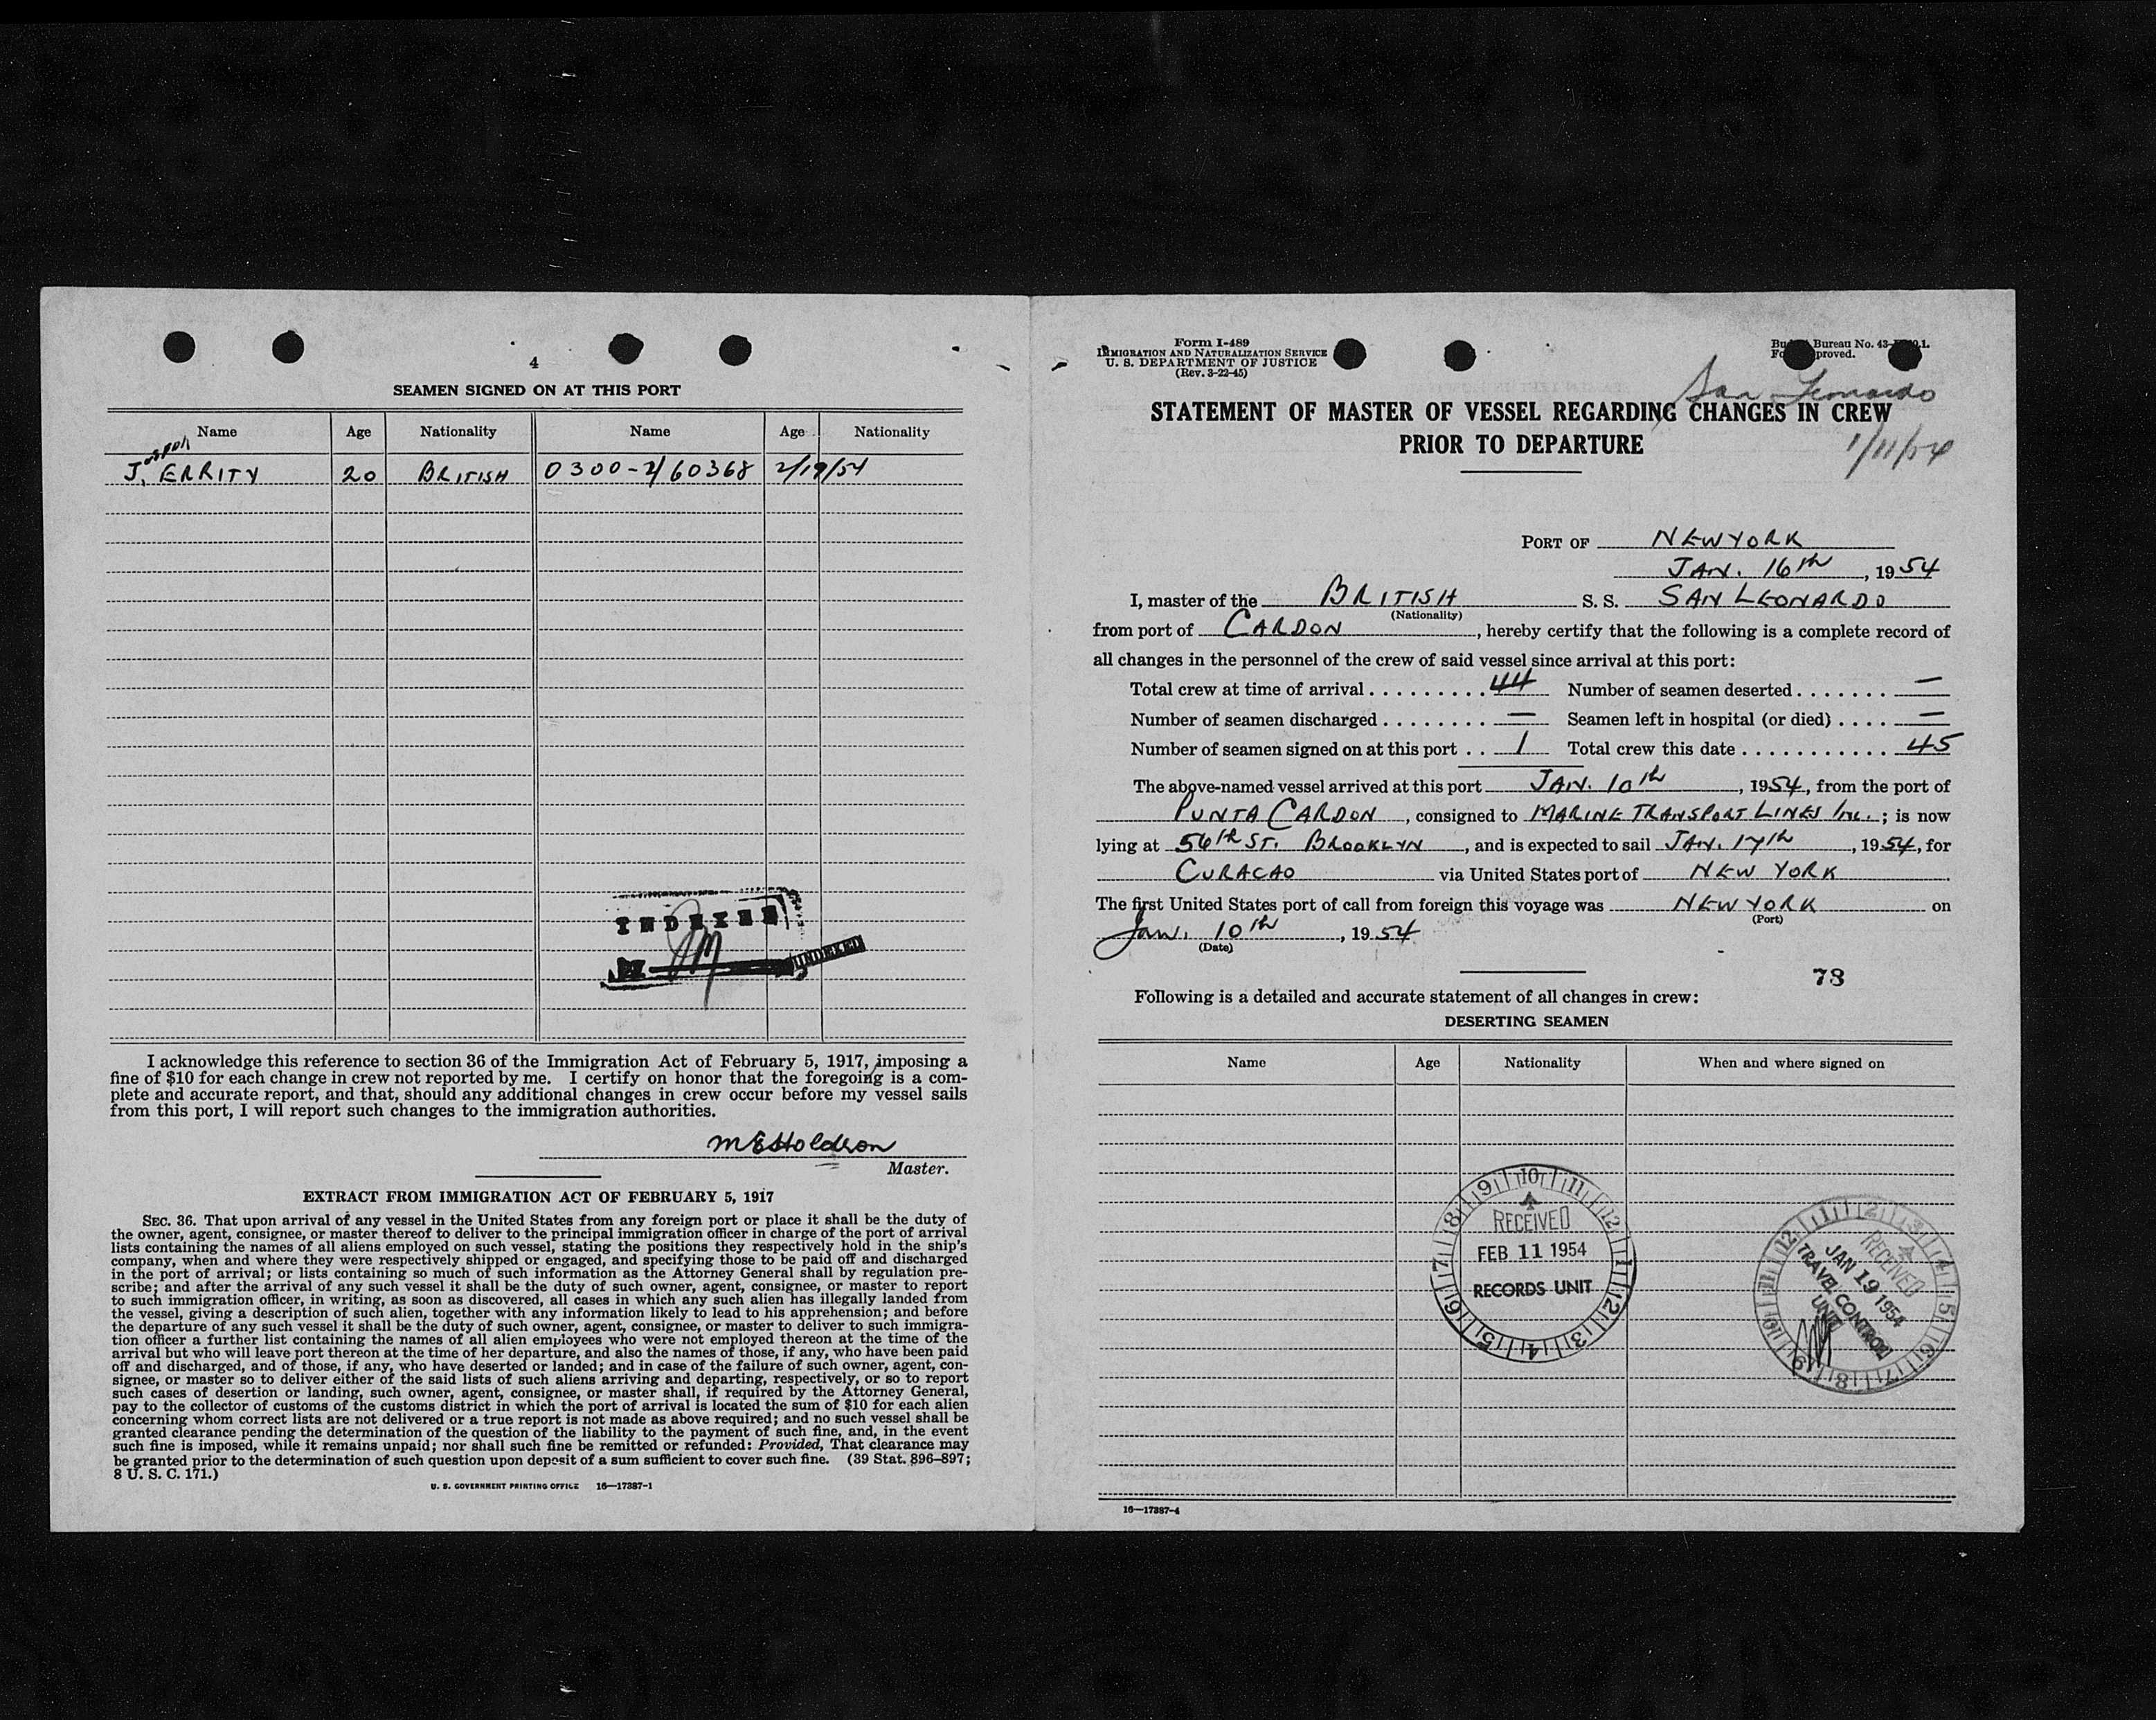 4
SEAMEN SIGNED ON AT THIS PORT
Name Age Nationality Name Age Nationality
Joseph
J. ERRITY 20 BRITISH 0300-2/60368 2/19/54
INDEXED
UNDEXED
I acknowledge this reference to section 36 of the Immigration Act of February 5, 1917, imposing a
fine of $10 for each change in crew not reported by me. I certify on honor that the foregoing is a com-
plete and accurate report, and that, should any additional changes in crew occur before my vessel sails
from this port, I will report such changes to the immigration authorities.
M E Holdson
Master.
EXTRACT FROM IMMIGRATION ACT OF FEBRUARY 5, 1917
SEC. 36. That upon arrival of any vessel in the United States from any foreign port or place it shall be the duty of
the owner, agent, consignee, or master thereof to deliver to the principal immigration officer in charge of the port of arrival
lists containing the names of all aliens employed on such vessel, stating the positions they respectively hold in the ship's
company, when and where they were respectively shipped or engaged, and specifying those to be paid off and discharged
in the port of arrival; or lists containing so much of such information as the Attorney General shall by regulation pre-
scribe; and after the arrival of any such vessel it shall be the duty of such owner, agent, consignee, or master to report
to such immigration officer, in writing, as soon as discovered, all cases in which any such alien has illegally landed from
the vessel, giving a description of such alien, together with any information likely to lead to his apprehension; and before
the departure of any such vessel it shall be the duty of such owner, agent, consignee, or master to deliver to such immigra-
tion officer a further list containing the names of all alien employees who were not employed thereon at the time of the
arrival but who will leave port thereon at the time of her departure, and also the names of those, if any, who have been paid
off and discharged, and of those, if any, who have deserted or landed; and in case of the failure of such owner, agent, con-
signee, or master so to deliver either of the said lists of such aliens arriving and departing, respectively, or so to report
such cases of desertion or landing, such owner, agent, consignee, or master shall, if required by the Attorney General,
pay to the collector of customs of the customs district in which the port of arrival is located the sum of $10 for each alien
concerning whom correct lists are not delivered or a true report is not made as above required; and no such vessel shall be
granted clearance pending the determination of the question of the liability to the payment of such fine, and, in the event
such fine is imposed, while it remains unpaid; nor shall such fine be remitted or refunded: Provided, That clearance may
be granted prior to the determination of such question upon deposit of a sum sufficient to cover such fine. (39 Stat. 896–897;
8 U. S. C. 171.)
U. S. GOVERNMENT PRINTING OFFICE 16—17387-1
Form I-489
IMMIGRATION AND NATURALIZATION SERVICE
U. S. DEPARTMENT OF JUSTICE
(Rev. 3-22-45)
Bureau No. 43-
San Leonardo
STATEMENT OF MASTER OF VESSEL REGARDING CHANGES IN CREW
PRIOR TO DEPARTURE
1/11/54
PORT OF NEW YORK
JAN. 16th, 1954
I, master of the BRITISH S. S. SAN LEONARDO
(Nationality)
from port of CARDON, hereby certify that the following is a complete record of
all changes in the personnel of the crew of said vessel since arrival at this port:
Total crew at time of arrival . . . . . . . . . 44 Number of seamen deserted . . . . . . . —
Number of seamen discharged . . . . . . . . — Seamen left in hospital (or died) . . . . —
Number of seamen signed on at this port . . 1 Total crew this date . . . . . . . . . . . 45
The above-named vessel arrived at this port JAN. 10th, 1954, from the port of
PUNTA CARDON, consigned to MARINE TRANSPORT LINES Inc.; is now
lying at 56th ST. BROOKLYN, and is expected to sail JAN. 17th, 1954, for
CURACAO via United States port of NEW YORK.
The first United States port of call from foreign this voyage was NEW YORK on
(Port)
Jan. 10th, 1954
(Date)
73
Following is a detailed and accurate statement of all changes in crew:
DESERTING SEAMEN
Name Age Nationality When and where signed on
RECEIVED
FEB 11 1954
RECORDS UNIT
RECEIVED
JAN 19 1954
TRAVEL CONTROL
UNIT
16—17387-4